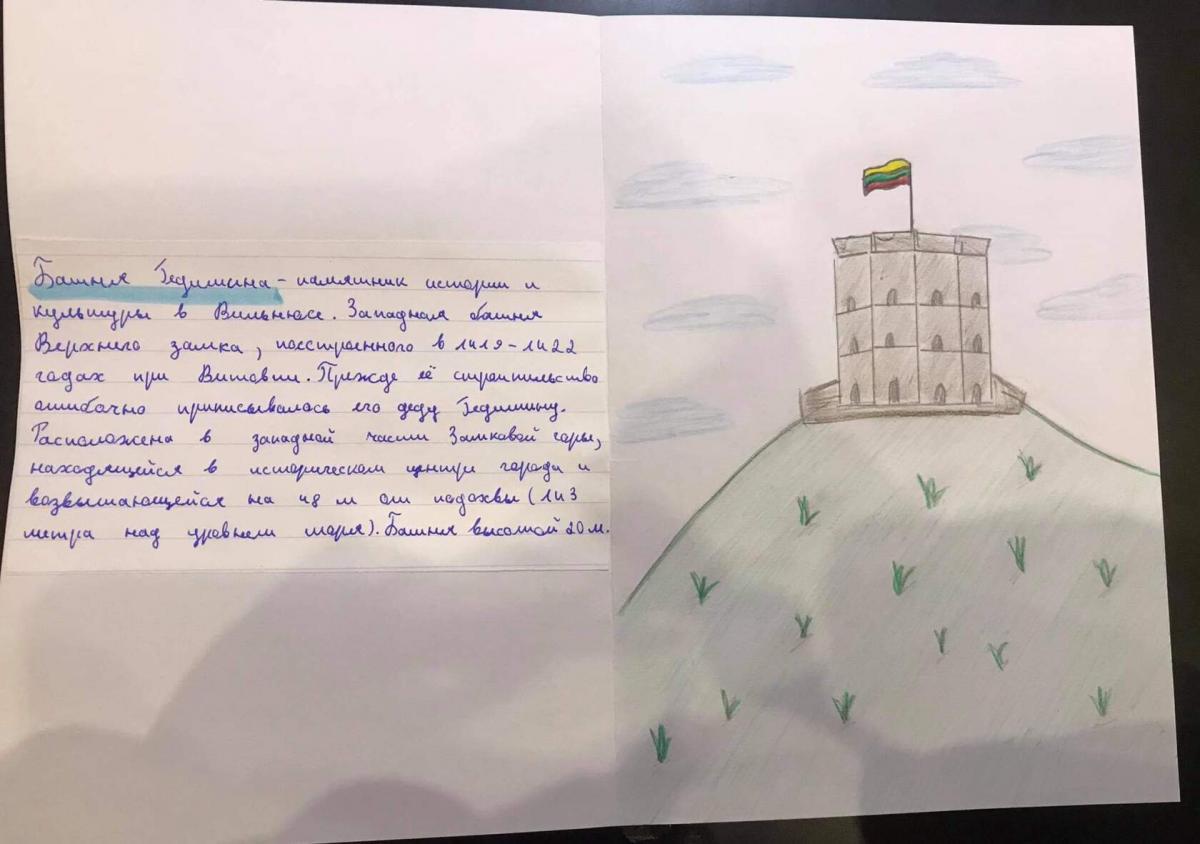 Башня Гедимина - памятник истории и
культуры в Вильнюсе. Западная башня
Верхнего замка, построенного в 1419-1422
годах при Витовте. Прежде её строительство
ошибочно приписывалось его деду Гедимину.
Расположена в западной части Замковой горы,
находящейся в историческом центре города и
возвышающейся на 48 м от подошвы (143
метра над уровнем моря). Башня высотой 20 м.